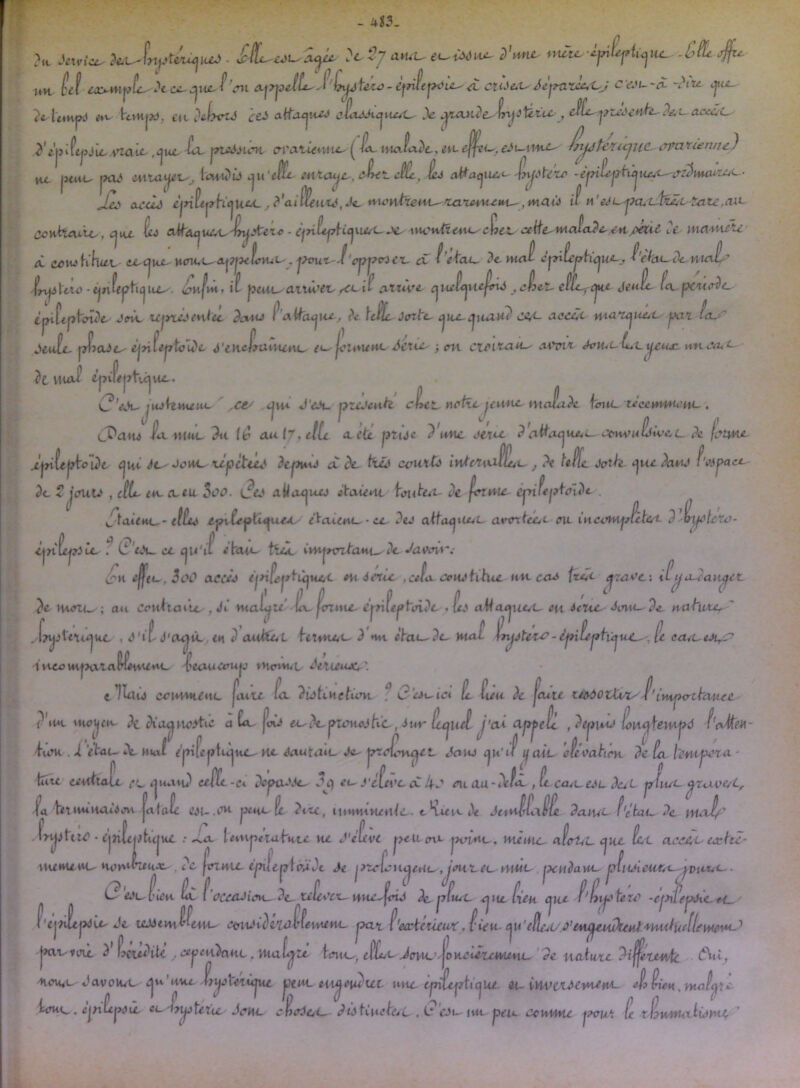 - 483 -
du service des hystériques. Elle est âgée de 27 ans et issue d'une mère épileptique. Elle offre
un bel exemple de ce que l'on appelle l'hystéro-épilepsie à crises séparées; c'est-à-dire que
de temps en temps, en dehors des attaques classiques de grande hystérie, elle présente des accès
d'épilepsie vraie, que la pression ovarienne (la malade, en effet, est une hystérique ovarienne)
ne peut pas enrayer, tandis qu'elle enraye, chez elle, les attaques hystéro-épileptiques ordinaires.
Les accès épileptiques, d'ailleurs, se montrent rarement, mais il n'est pas très rare, au
contraire, que les attaques hystéro-épileptiques se montrent chez cette malade en série de manière
à constituer ce que nous appelons, pour l'opposer à l'état de mal épileptique, l'état de mal
hystéro-épileptique. Enfin, il peut arriver, et il arrive quelquefois, chez elle, que seule la période
épileptoïde soit représentée dans l'attaque, de telle sorte que quand ces accès marqués par la
seule phase épileptoïde s'enchaînent et forment série; on croirait avoir sous les yeux un cas
de mal épileptique.
C'est justement ce qui s'est présenté chez notre jeune malade tout récemment.
Dans la nuit du 16 au 17, elle a été prise d'une série d'attaques convulsives de forme
épileptoïde qui se sont répétées depuis à de très courts intervalles, de telle sorte que dans l'espace
de 2 jours, elle en a eu 300. Ces attaques étaient toutes de forme épileptoïde.
Étaient-elles épileptiques étaient-ce des attaques avortées ou incomplètes d'hystéro-
épilepsie? C'est ce qu'il était très important de savoir:
En effet, 300 accès épileptiques en série, cela constitue un cas très grave: il y a danger
de mort; au contraire, si malgré la forme épileptoïde, les attaques en série sont de nature
hystérique, s'il s'agit, en d'autres termes d'un état de mal hystéro-épileptique, le cas est
incomparablement beaucoup moins sérieux.
Mais comment faire la distinction? C'est ici le lieu de faire ressortir l'importance
d'un moyen de diagnostic à la fois et de pronostic, sur lequel j'ai appelé, depuis longtemps l'atten-
tion. L'état de mal épileptique ne saurait se prolonger sans qu'il y ait élévation de la tempéra-
ture centrale et quand celle-ci dépasse 39 et s'élève à 40 ou au-delà, le cas est des plus graves,
la terminaison fatale est, on peut le dire, imminente. Rien de semblable dans l'état de mal
hystéro-épileptique: La température ne s'élève peu ou point, même alors que les accès extrê-
mement nombreux, de forme épileptoïde se prolongent, jour et nuit, pendant plusieurs jours.
C'est bien là l'occasion de relever une fois de plus que bien que l'hystéro-épilepsie et
l'épilepsie se ressemblent considérablement par l'extérieur, bien qu'elles s'engendrent mutuellement
par voie d'hérédité, cependant, malgré tout, elles sont foncièrement de nature différente. Oui,
nous savons qu'une hystérique peut engendrer une épileptique et inversement eh bien, malgré
tout, épilepsie et hystérie sont choses distinctes. C'est un peu comme pour le rhumatisme